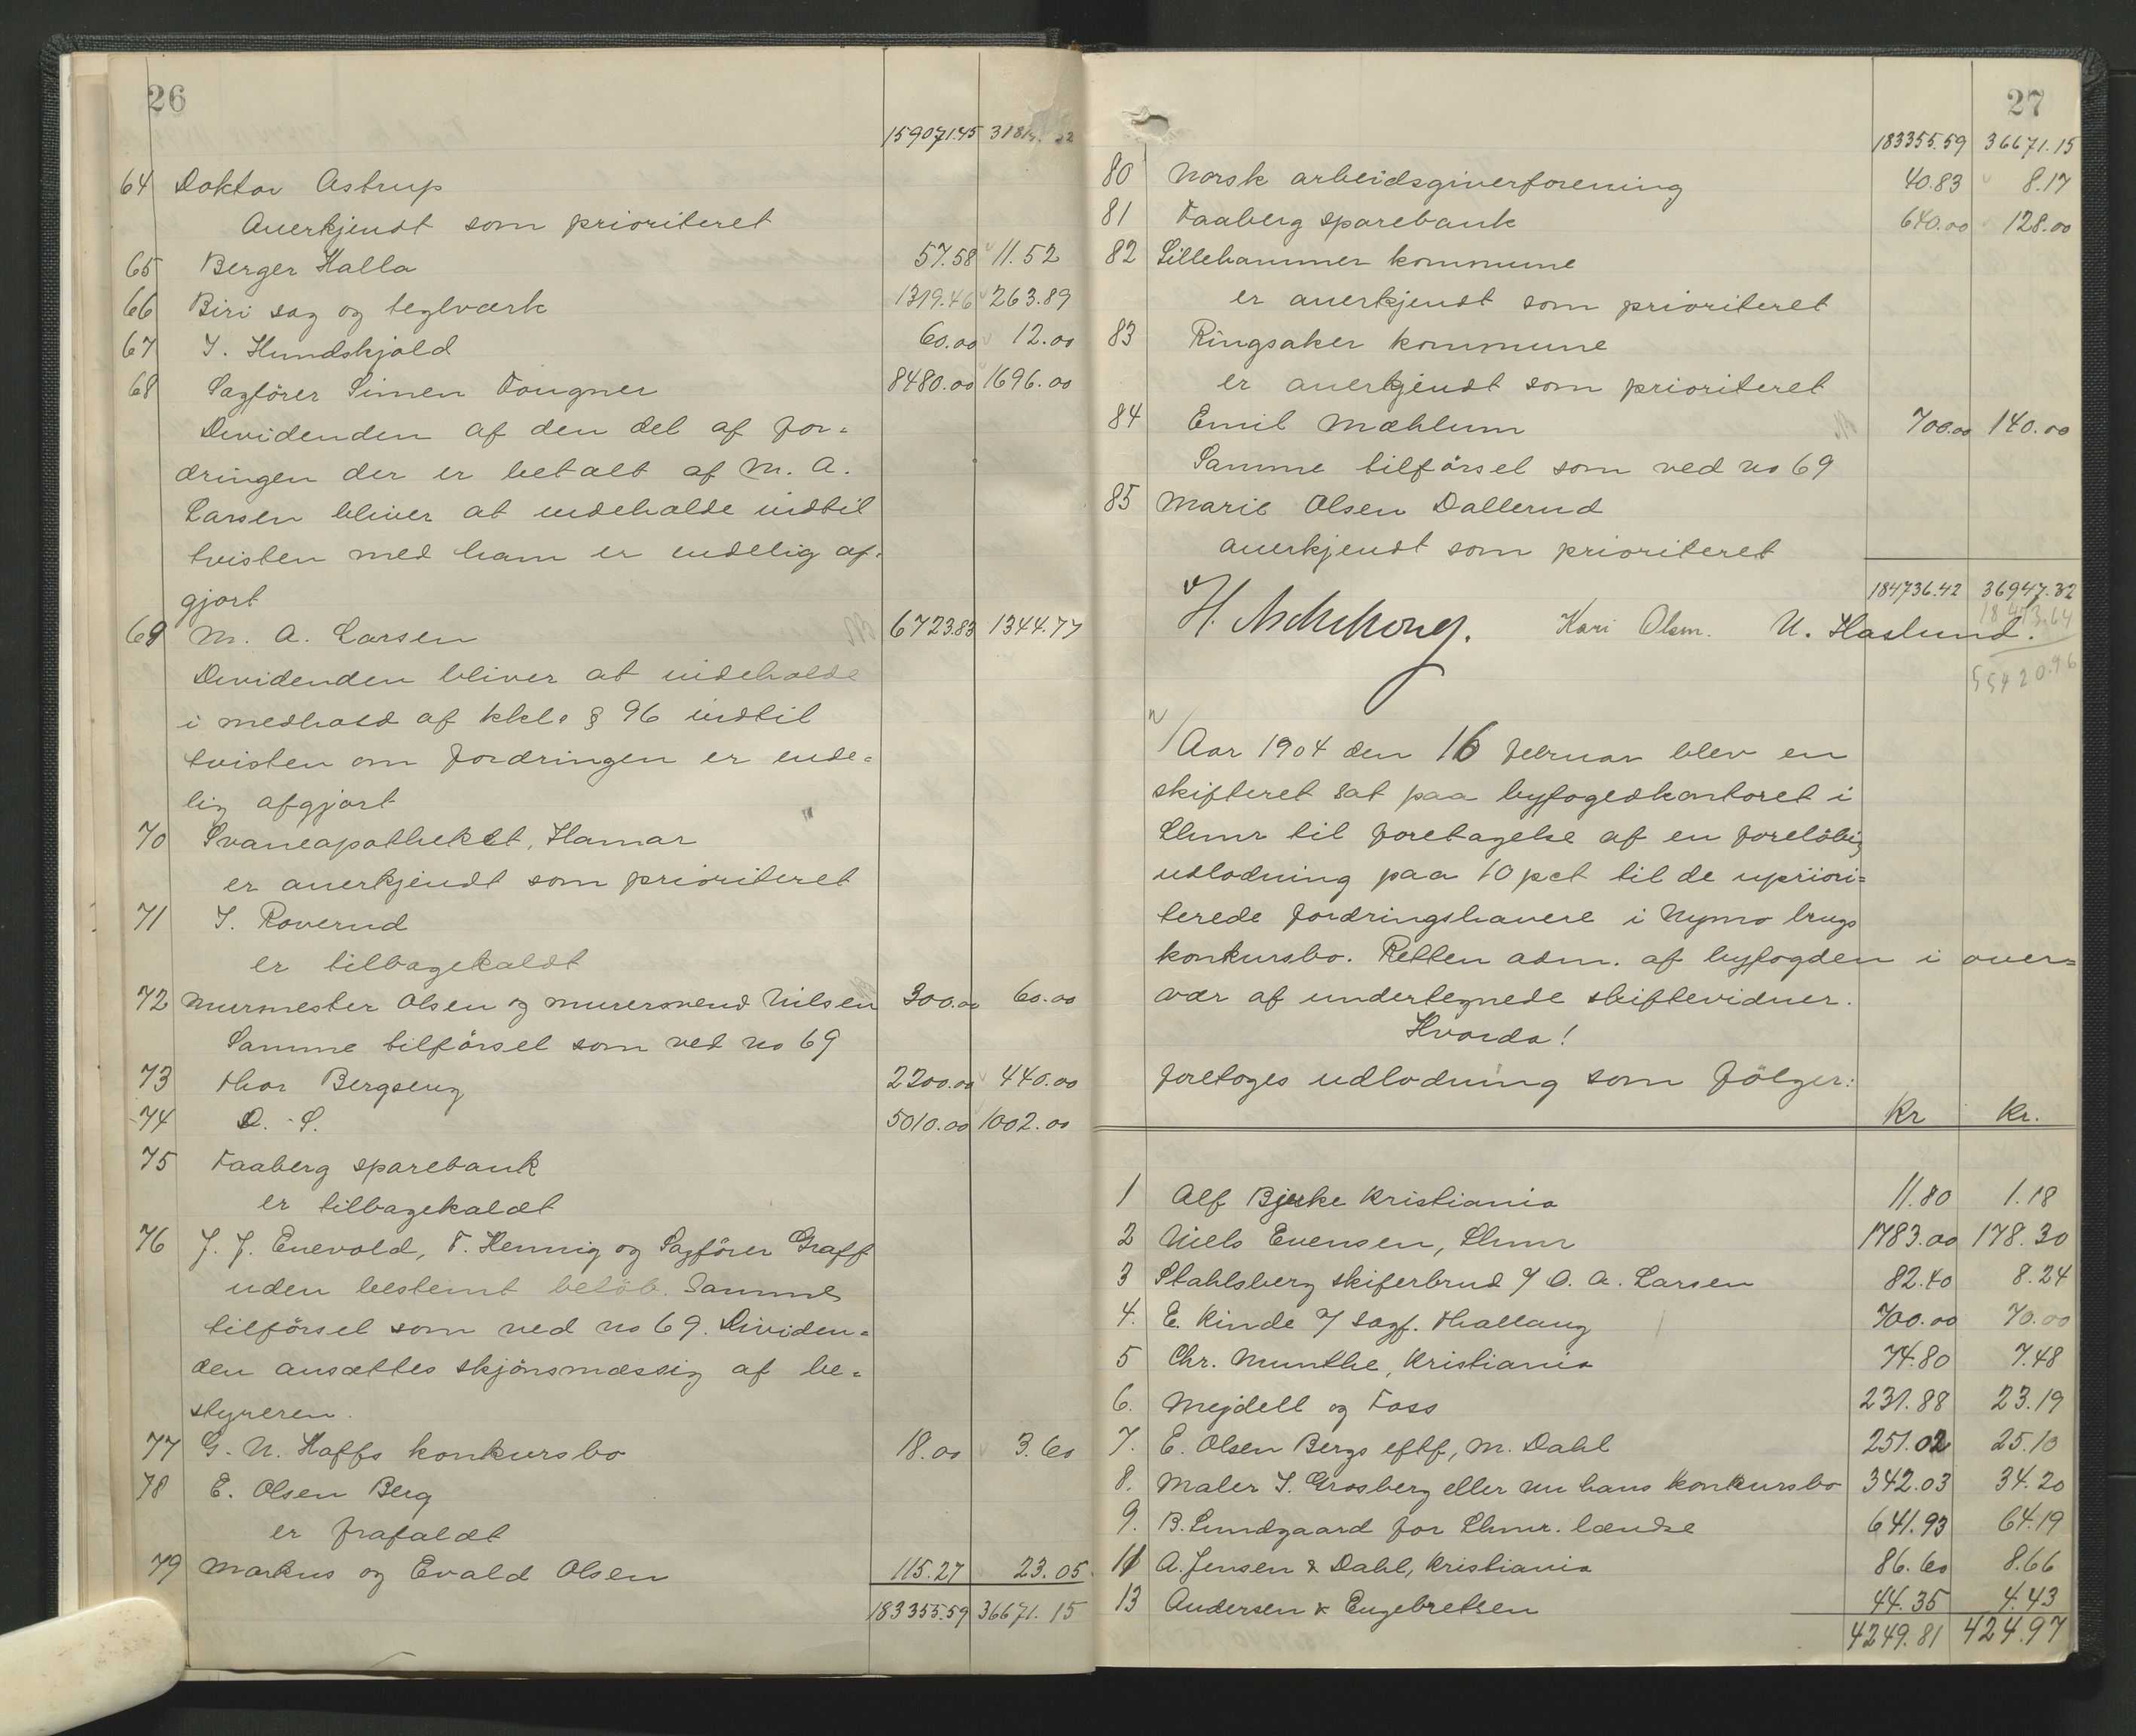 26
159071.45 318
64 Doktor Astrup
Anerkjendt som prioriteret
65 Berger Halla 57.58 11.52
66 Biri sag og teglværk 1319.46 263.89
67 J. Hundskjold 60.00 12.00
68 Sagförer Simen Fougner 8480.00 1696.00
Dividenden af den del af for-
dringen der er betalt af M. A.
Larsen bliver at indeholde indtil
tvisten med ham er endelig af-
gjort
69 M. A. Larsen 6723.83 1344.77
Dividenden bliver at indeholde
i medhold af kkl. § 96 indtil
tvisten om fordringen er ende-
lig afgjort
70 Svaneapotheket, Hamar
er anerkjendt som prioriteret
71 J. Roverud
er tilbagekaldt
72 Murmester Olsen og murersvend Nilsen 300.00 60.00
Samme tilförsel som ved no 69
73 Thor Bergseng 2200.00 440.00
74 D. S. 5010.00 1002.00
75 Faaberg sparebank
er tilbagekaldt
76 J. J. Enevold, F. Hennig og Sagförer Graff
uden bestemt belöb. Samme
tilförsel som ved no 69. Dividen-
den ansættes skjönsmæssig af be-
styreren.
77 G. N. Haffs konkursbo 18.00 3.60
78 E. Olsen Berg
er frafaldt
79 Markus og Evald Olsen 115.27 23.05
183355.59 36671.15
27
183355.59 36671.15
80 Norsk arbeidsgiverforening 40.83 8.17
81 Faaberg sparebank 640.00 128.00
82 Lillehammer kommune
er anerkjendt som prioriteret
83 Ringsaker kommune
er anerkjendt som prioriteret
84 Emil Mæhlum 700.00 140.00
Samme tilförsel som ved no 69
85 Marie Olsen Dallerud
anerkjendt som prioriteret
184736.42 36947.32
18473.64
H. Aschehoug. Kari Olsen. N. Haslund.
55420.96
Aar 1904 den 16 februar blev en
skifteret sat paa byfogedkontoret i
Lhmr til foretagelse af en forelöbig
udlodning paa 10 pct til de uprior-
terede fordringshavere i Nymo brugs
konkursbo. Retten adm. af byfogden i over-
vær af undertegnede skiftevidner.
Hvorda!
foretoges udlodning som fölger:
Kr Kr.
1 Alf Bjerke Kristiania 11.80 1.18
2 Niels Evensen, Lhmr 1783.00 178.30
3 Stahlsberg skiferbrud / O. A. Larsen 82.40 8.24
4. E. Kinde / sagf. Thallaug 700.00 70.00
5 Chr. Munthe, Kristiania 74.80 7.48
6. Mejdell og Foss 231.88 23.19
7. E. Olsen Bergs eftf, M. Dahl 251.02 25.10
8. Maler J. Grosberg eller nu hans konkursbo 342.03 34.20
9. B. Lundgaard for Lhmr. lændse 641.93 64.19
11 A. Jensen & Dahl, Kristiania 86.60 8.66
13 Andersen & Engebretsen 44.35 4.43
4249.81 424.97